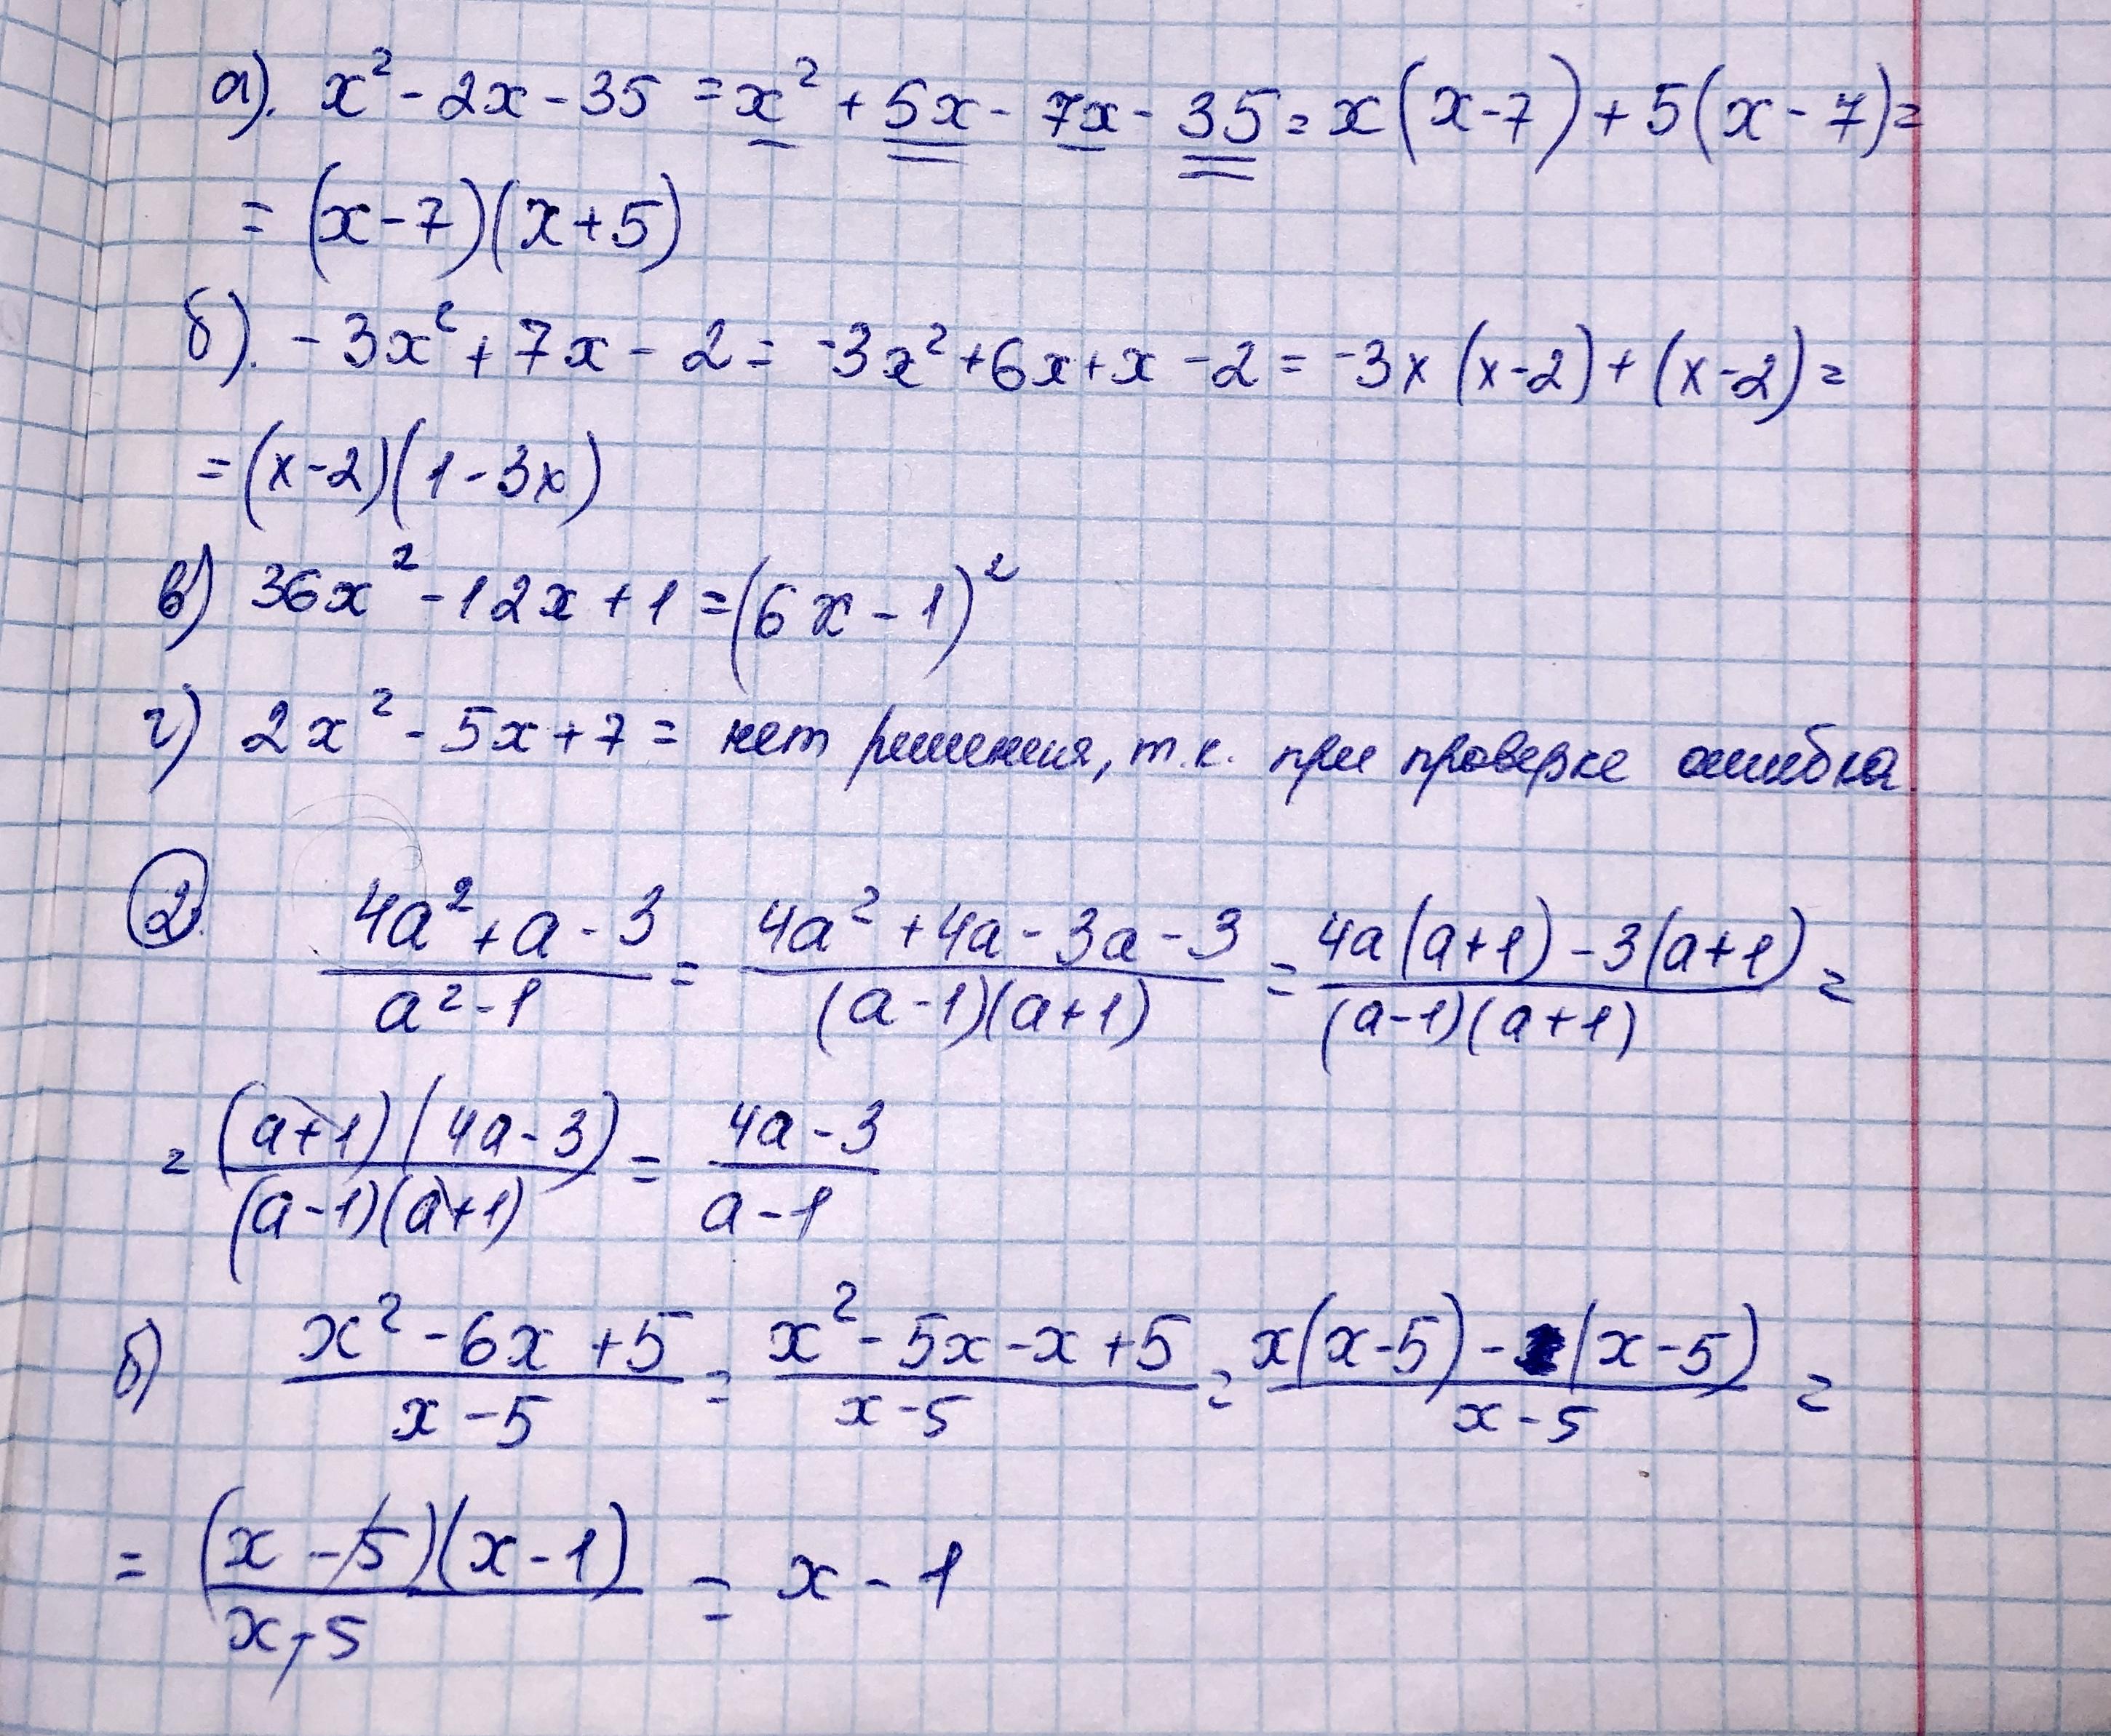 а). x² - 2x - 35 = x² + 5x - 7x - 35 = x(x-7) + 5(x-7) =
= (x-7)(x+5)
б). -3x² + 7x - 2 = -3x² + 6x + x - 2 = -3x(x-2) + (x-2) =
= (x-2)(1-3x)
в) 36x² - 12x + 1 = (6x - 1)²
г) 2x² - 5x + 7 = нет решения, т.к. при проверке ошибка
2. (4a² + a - 3)/(a² - 1) = (4a² + 4a - 3a - 3)/((a-1)(a+1)) = (4a(a+1) - 3(a+1))/((a-1)(a+1)) =
= ((a+1)(4a-3))/((a-1)(a+1)) = (4a-3)/(a-1)
б) (x² - 6x + 5)/(x-5) = (x² - 5x - x + 5)/(x-5) = (x(x-5) - (x-5))/(x-5) =
= ((x-5)(x-1))/(x-5) = x - 1